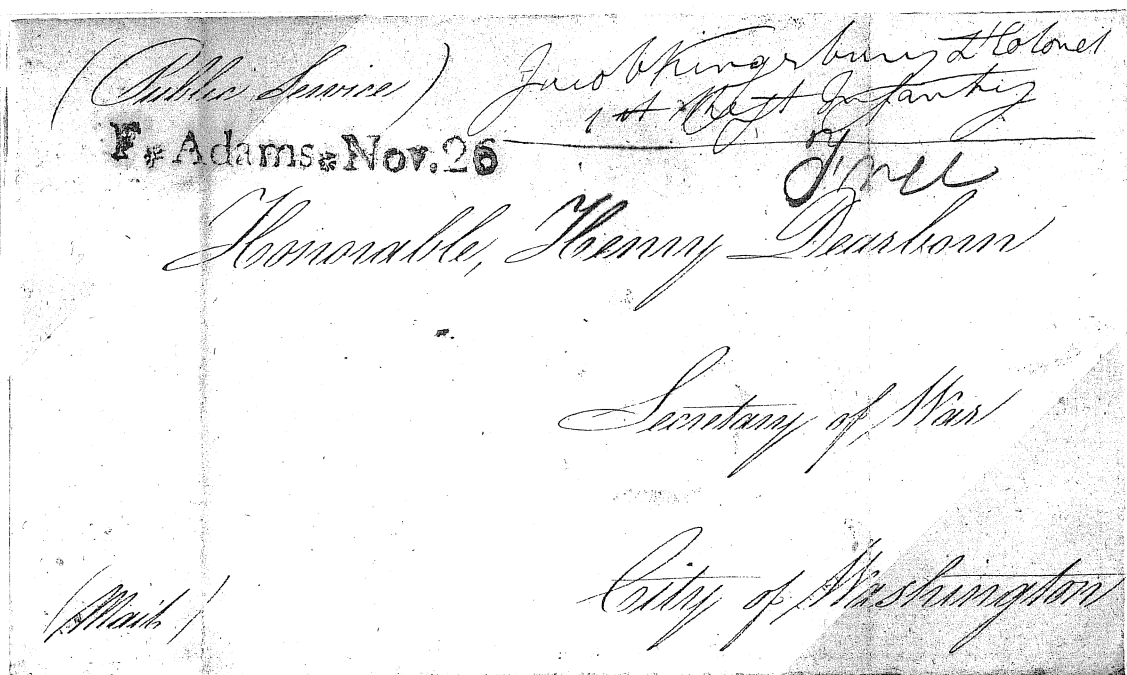 (Public Service)
Jacob Kingsbury Lt Colonel
1st Regt Infantry
F. Adams. Nov. 26
Free
Honorable, Henry Dearborn
Secretary of War
City of Washington
(Mail)